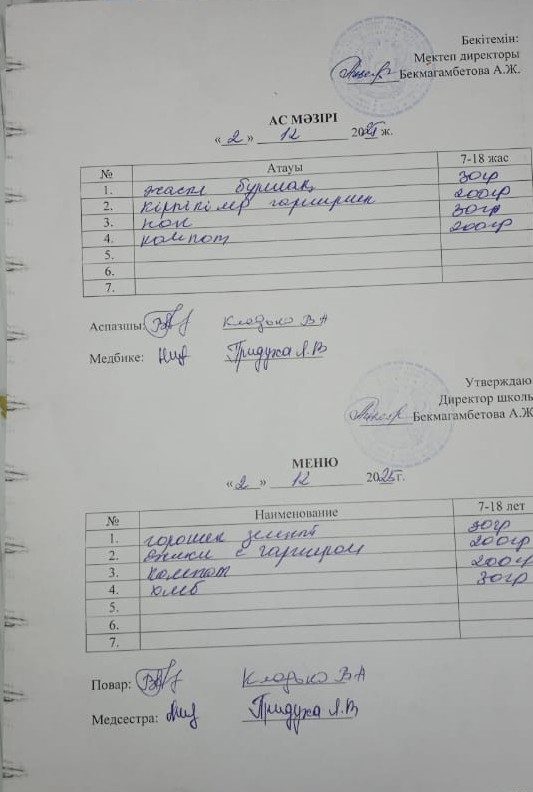 Бекітемін:
Мектеп директоры
Бекмагамбетова А.Ж.
АС МӘЗІРІ
« 2 » 12 2025 ж.
№ Атауы 7-18 жас
1. жасыл бұршақ 30гр
2. кірпікілер гарнирмен 200гр
3. нан 30гр
4. компот 200гр
5.
6.
7.
Аспазшы: Кладько В А
Медбике: Придуха Л.В
Утверждаю
Директор школь
Бекмагамбетова А.Ж
МЕНЮ
« 2 » 12 2025 г.
№ Наименование 7-18 лет
1. горошек зелный 30гр
2. ёжики с гарниром 200гр
3. компот 200гр
4. хлеб 30гр
5.
6.
7.
Повар: Кладько В А
Медсестра: Придуха Л.В